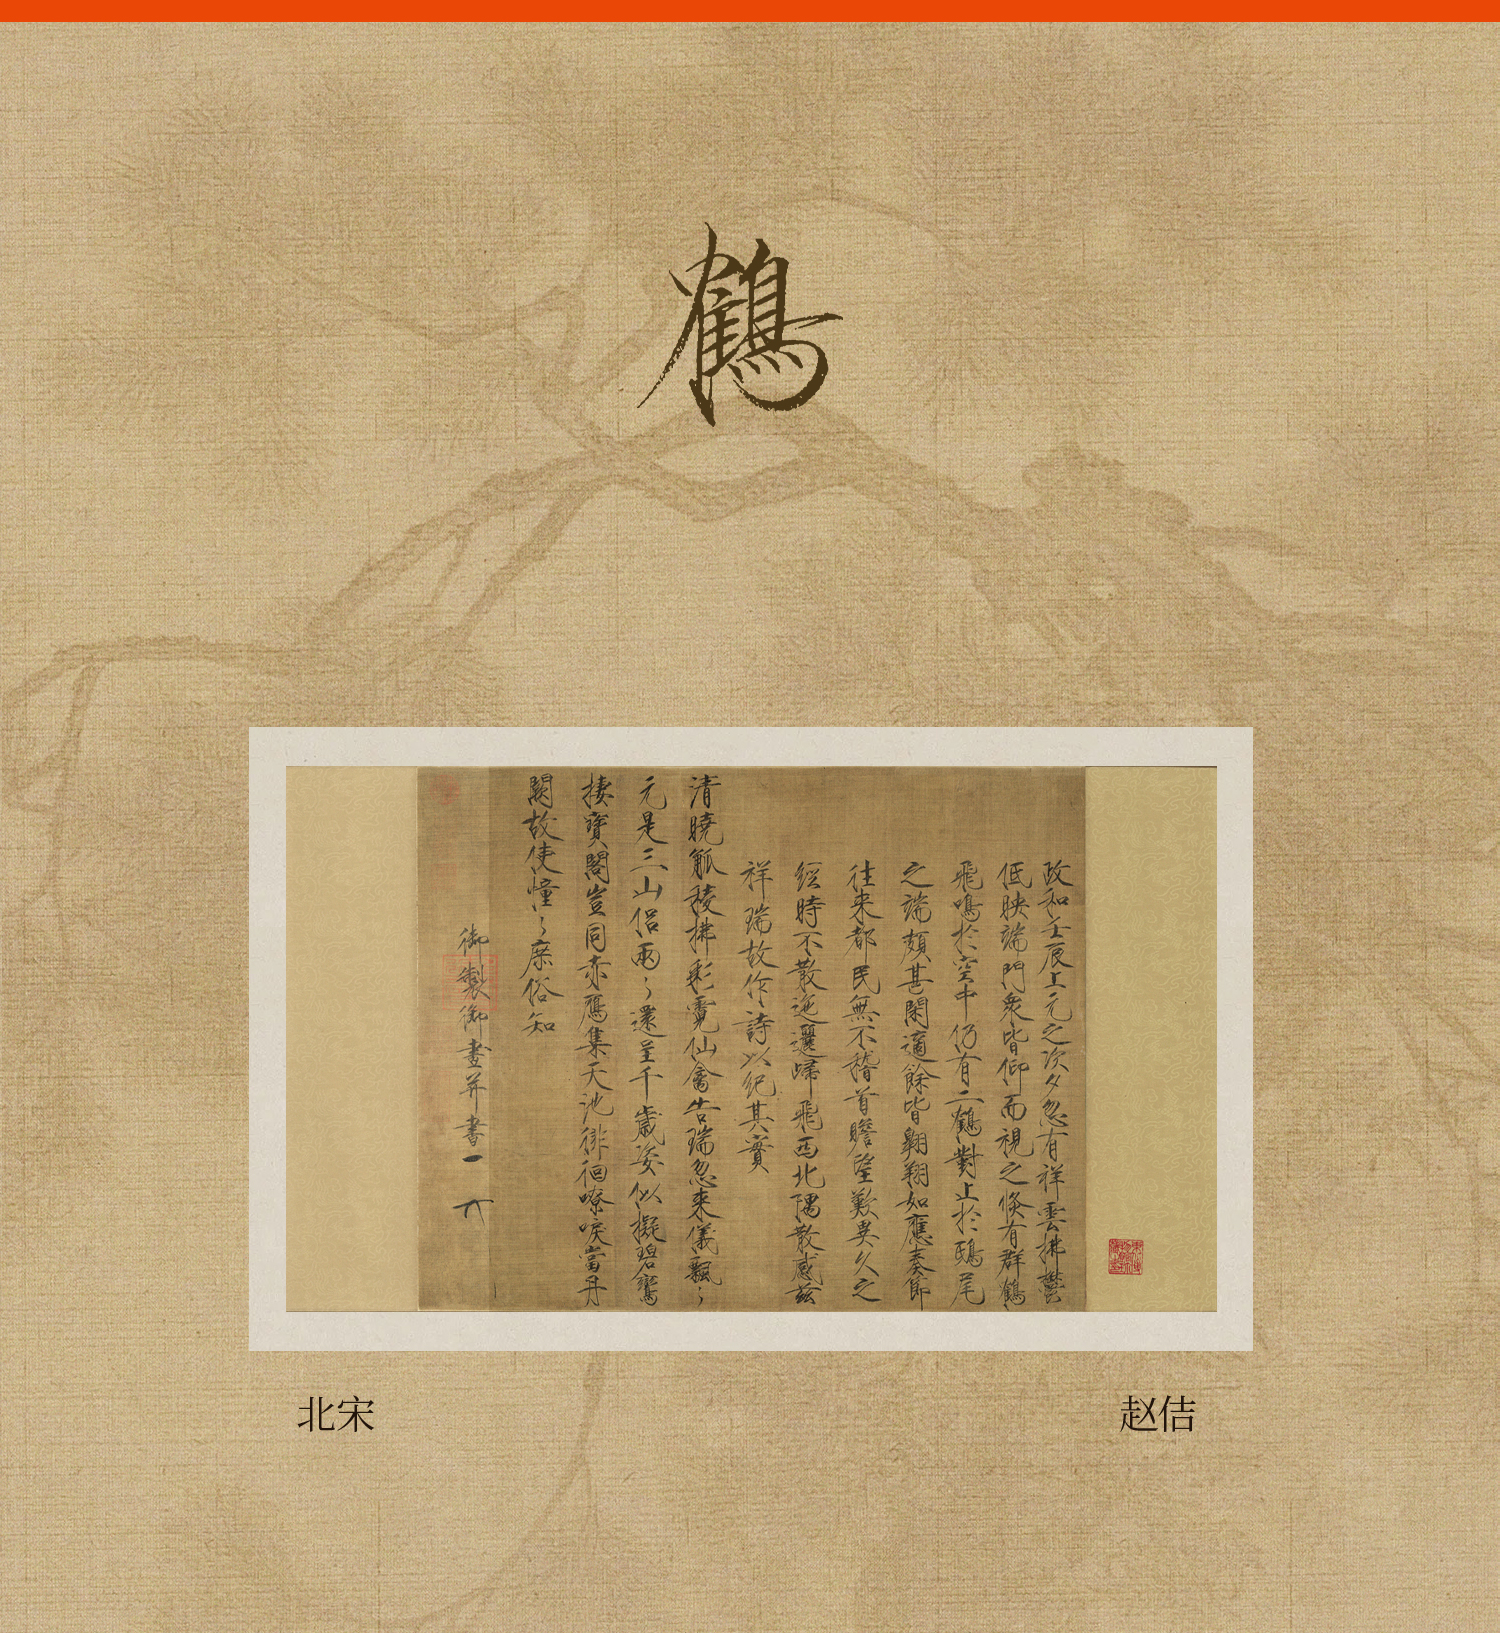 鶴
政和壬辰上元之次夕忽有祥雲拂鬱
低映端門衆皆仰而視之倏有群鶴
飛鳴於空中仍有二鶴對止於鴟尾
之端頗甚閑適餘皆翱翔如應奏節
往来都民無不稽首瞻望歎異久之
經時不散迤邐歸飛西北隅散感兹
祥瑞故作詩以紀其實
清曉觚稜拂彩霓仙禽告瑞忽来儀飄〻
元是三山侶兩〻還呈千歲姿似擬碧鸞
棲寶閣豈同赤鴈集天池徘徊嘹唳當丹
闕故使憧〻庶俗知
御製御畫并書
北宋
赵佶